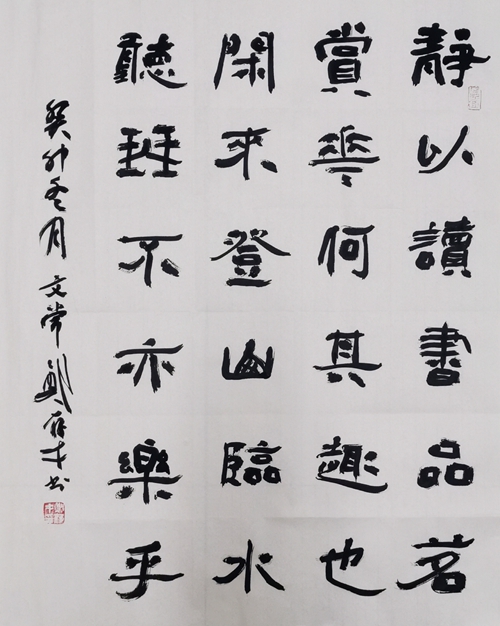 靜以讀書品茗
賞華何其趣也
閑來登山臨水
聽琴不亦樂乎
癸卯冬月